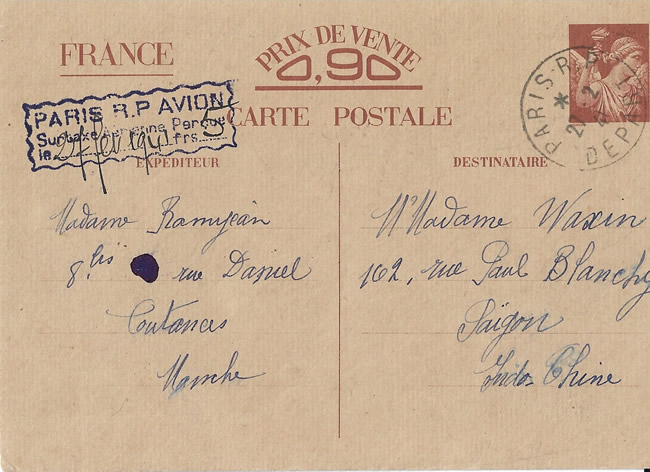 FRANCE
PRIX DE VENTE
0,90
CARTE POSTALE
PARIS R.P AVION
Surtaxe Aérienne Perçue
le 27 fev 1941 frs 5
PARIS R.P
27 2
DEPART
EXPÉDITEUR
DESTINATAIRE
Madame Ramjean
8 bis rue Daniel
Coutances
Manche
Mr Madame Waxin
102, rue Paul Blanchy
Saïgon
Indo-Chine